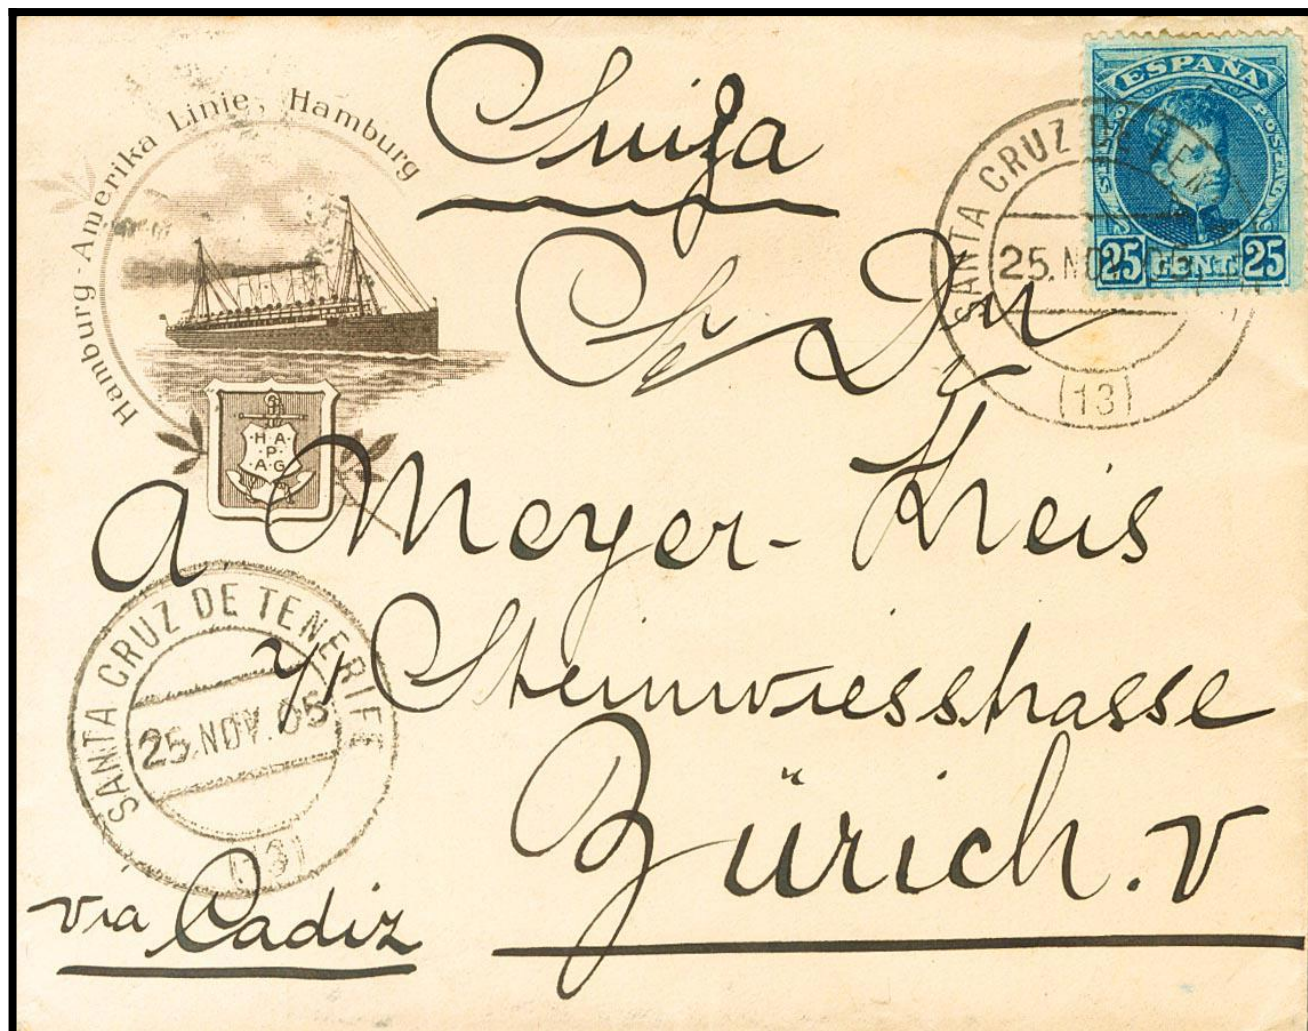 Hamburg-Amerika Linie, Hamburg
ESPAÑA
25 CENT. 25
SANTA CRUZ DE TEN
25. NOV. 05
(13)
Suiza
Sr Dn
H·A·
P·
A·G
A Meyer-Kreis
Steinwiesstrasse
Zürich. V
SANTA CRUZ DE TENERIFE
25. NOV. 05
(13)
via Cadiz